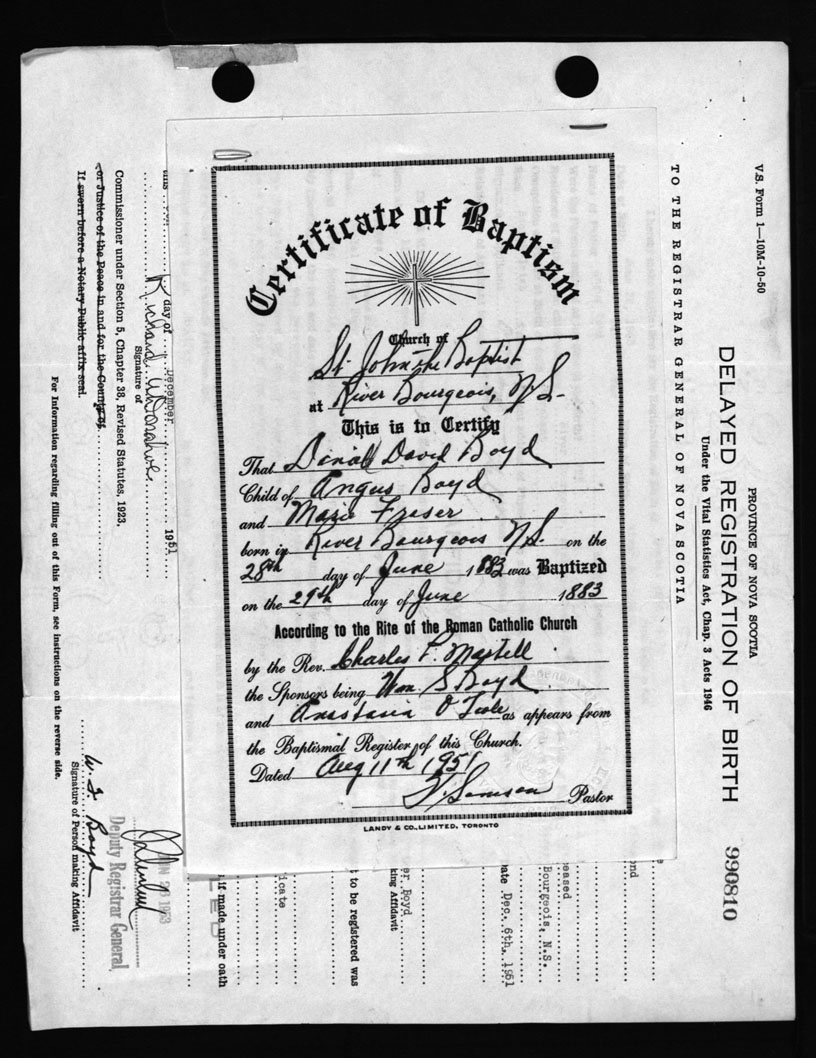 Certificate of Baptism
Church of
St. John the Baptist
at River Bourgeois, N.S.
This is to Certify
That David Boyd
Child of Angus Boyd
and Marie Fraser
born in River Bourgeois N.S. on the
28th day of June 1883 was Baptized
on the 29th day of June 1883
According to the Rite of the Roman Catholic Church
by the Rev. Charles F. Martell
the Sponsors being Wm. S Boyd
and Anastasia O'Toole as appears from
the Baptismal Register of this Church.
Dated Aug 11th 1951
Samson Pastor
LANDY & CO., LIMITED, TORONTO
V.S. Form 1—10M-10-50
PROVINCE OF NOVA SCOTIA
DELAYED REGISTRATION OF BIRTH 990810
Under the Vital Statistics Act, Chap. 3 Acts 1946
TO THE REGISTRAR GENERAL OF NOVA SCOTIA
ond
eased
Bourgeois, N.S.
ate Dec. 6th, 1951
er Boyd
king Affidavit
t to be registered was
icate
if made under oath
day of December 1951
Signature of
Commissioner under Section 5, Chapter 38, Revised Statutes, 1923,
or Justice of the Peace in and for the County of
If sworn before a Notary Public affix seal.
W. S. Boyd
Signature of Person making Affidavit
Deputy Registrar General
For Information regarding filling out of this Form, see instructions on the reverse side.